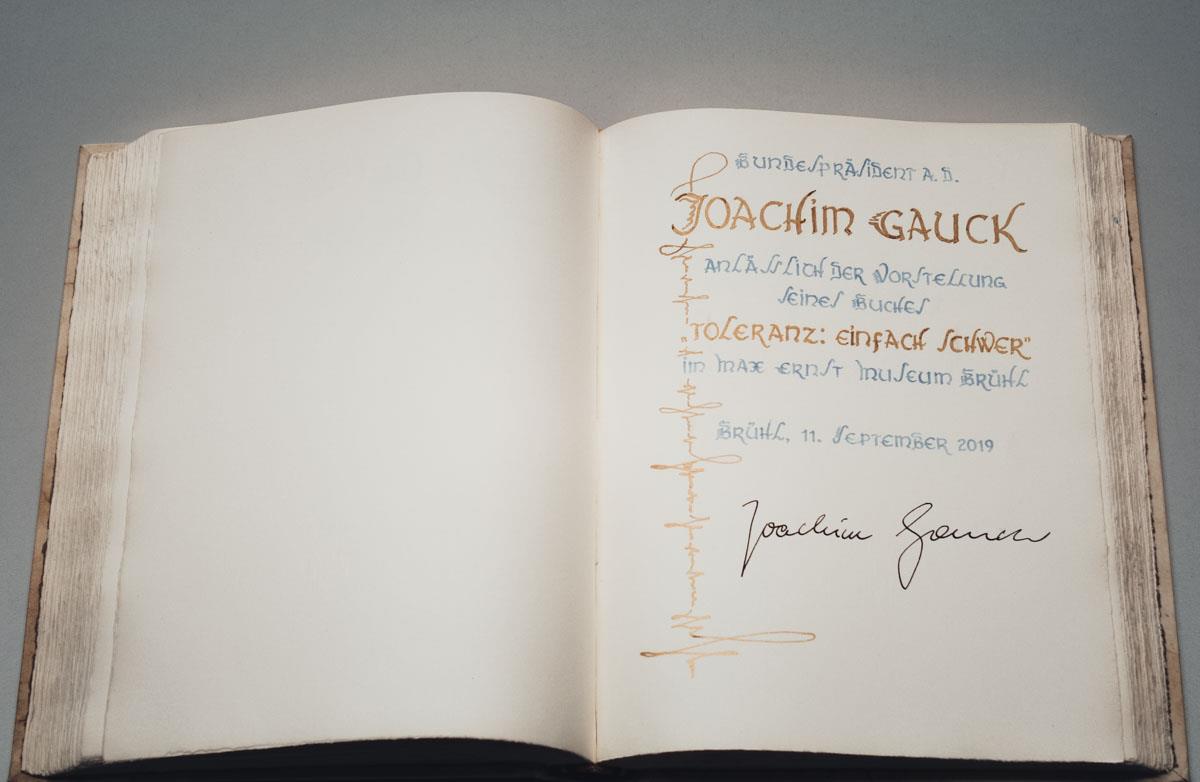 BUNDESPRÄSIDENT A.D.
JOACHIM GAUCK
ANLÄSSLICH DER VORSTELLUNG
SEINES BUCHES
"TOLERANZ: EINFACH SCHWER"
IM MAX ERNST MUSEUM BRÜHL
BRÜHL, 11. SEPTEMBER 2019
Joachim Gauck